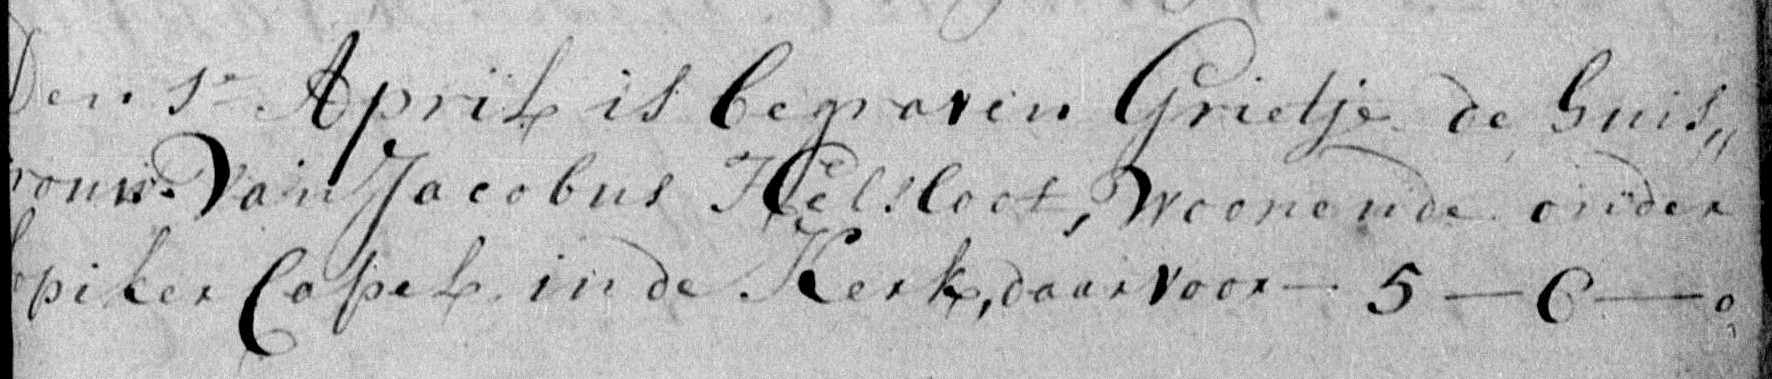 Den 1e April is begraven Grietje de huis„
vrouw van Jacobus Kelsloot, woonende onder
Lopiker Capel in de Kerk, daar voor — 5 — 6 — 0